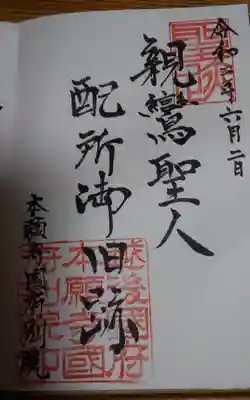 令和二年六月二日
親鸞聖人
配所御旧跡
本願寺国府別院
越後国府
本願寺國
府別院印